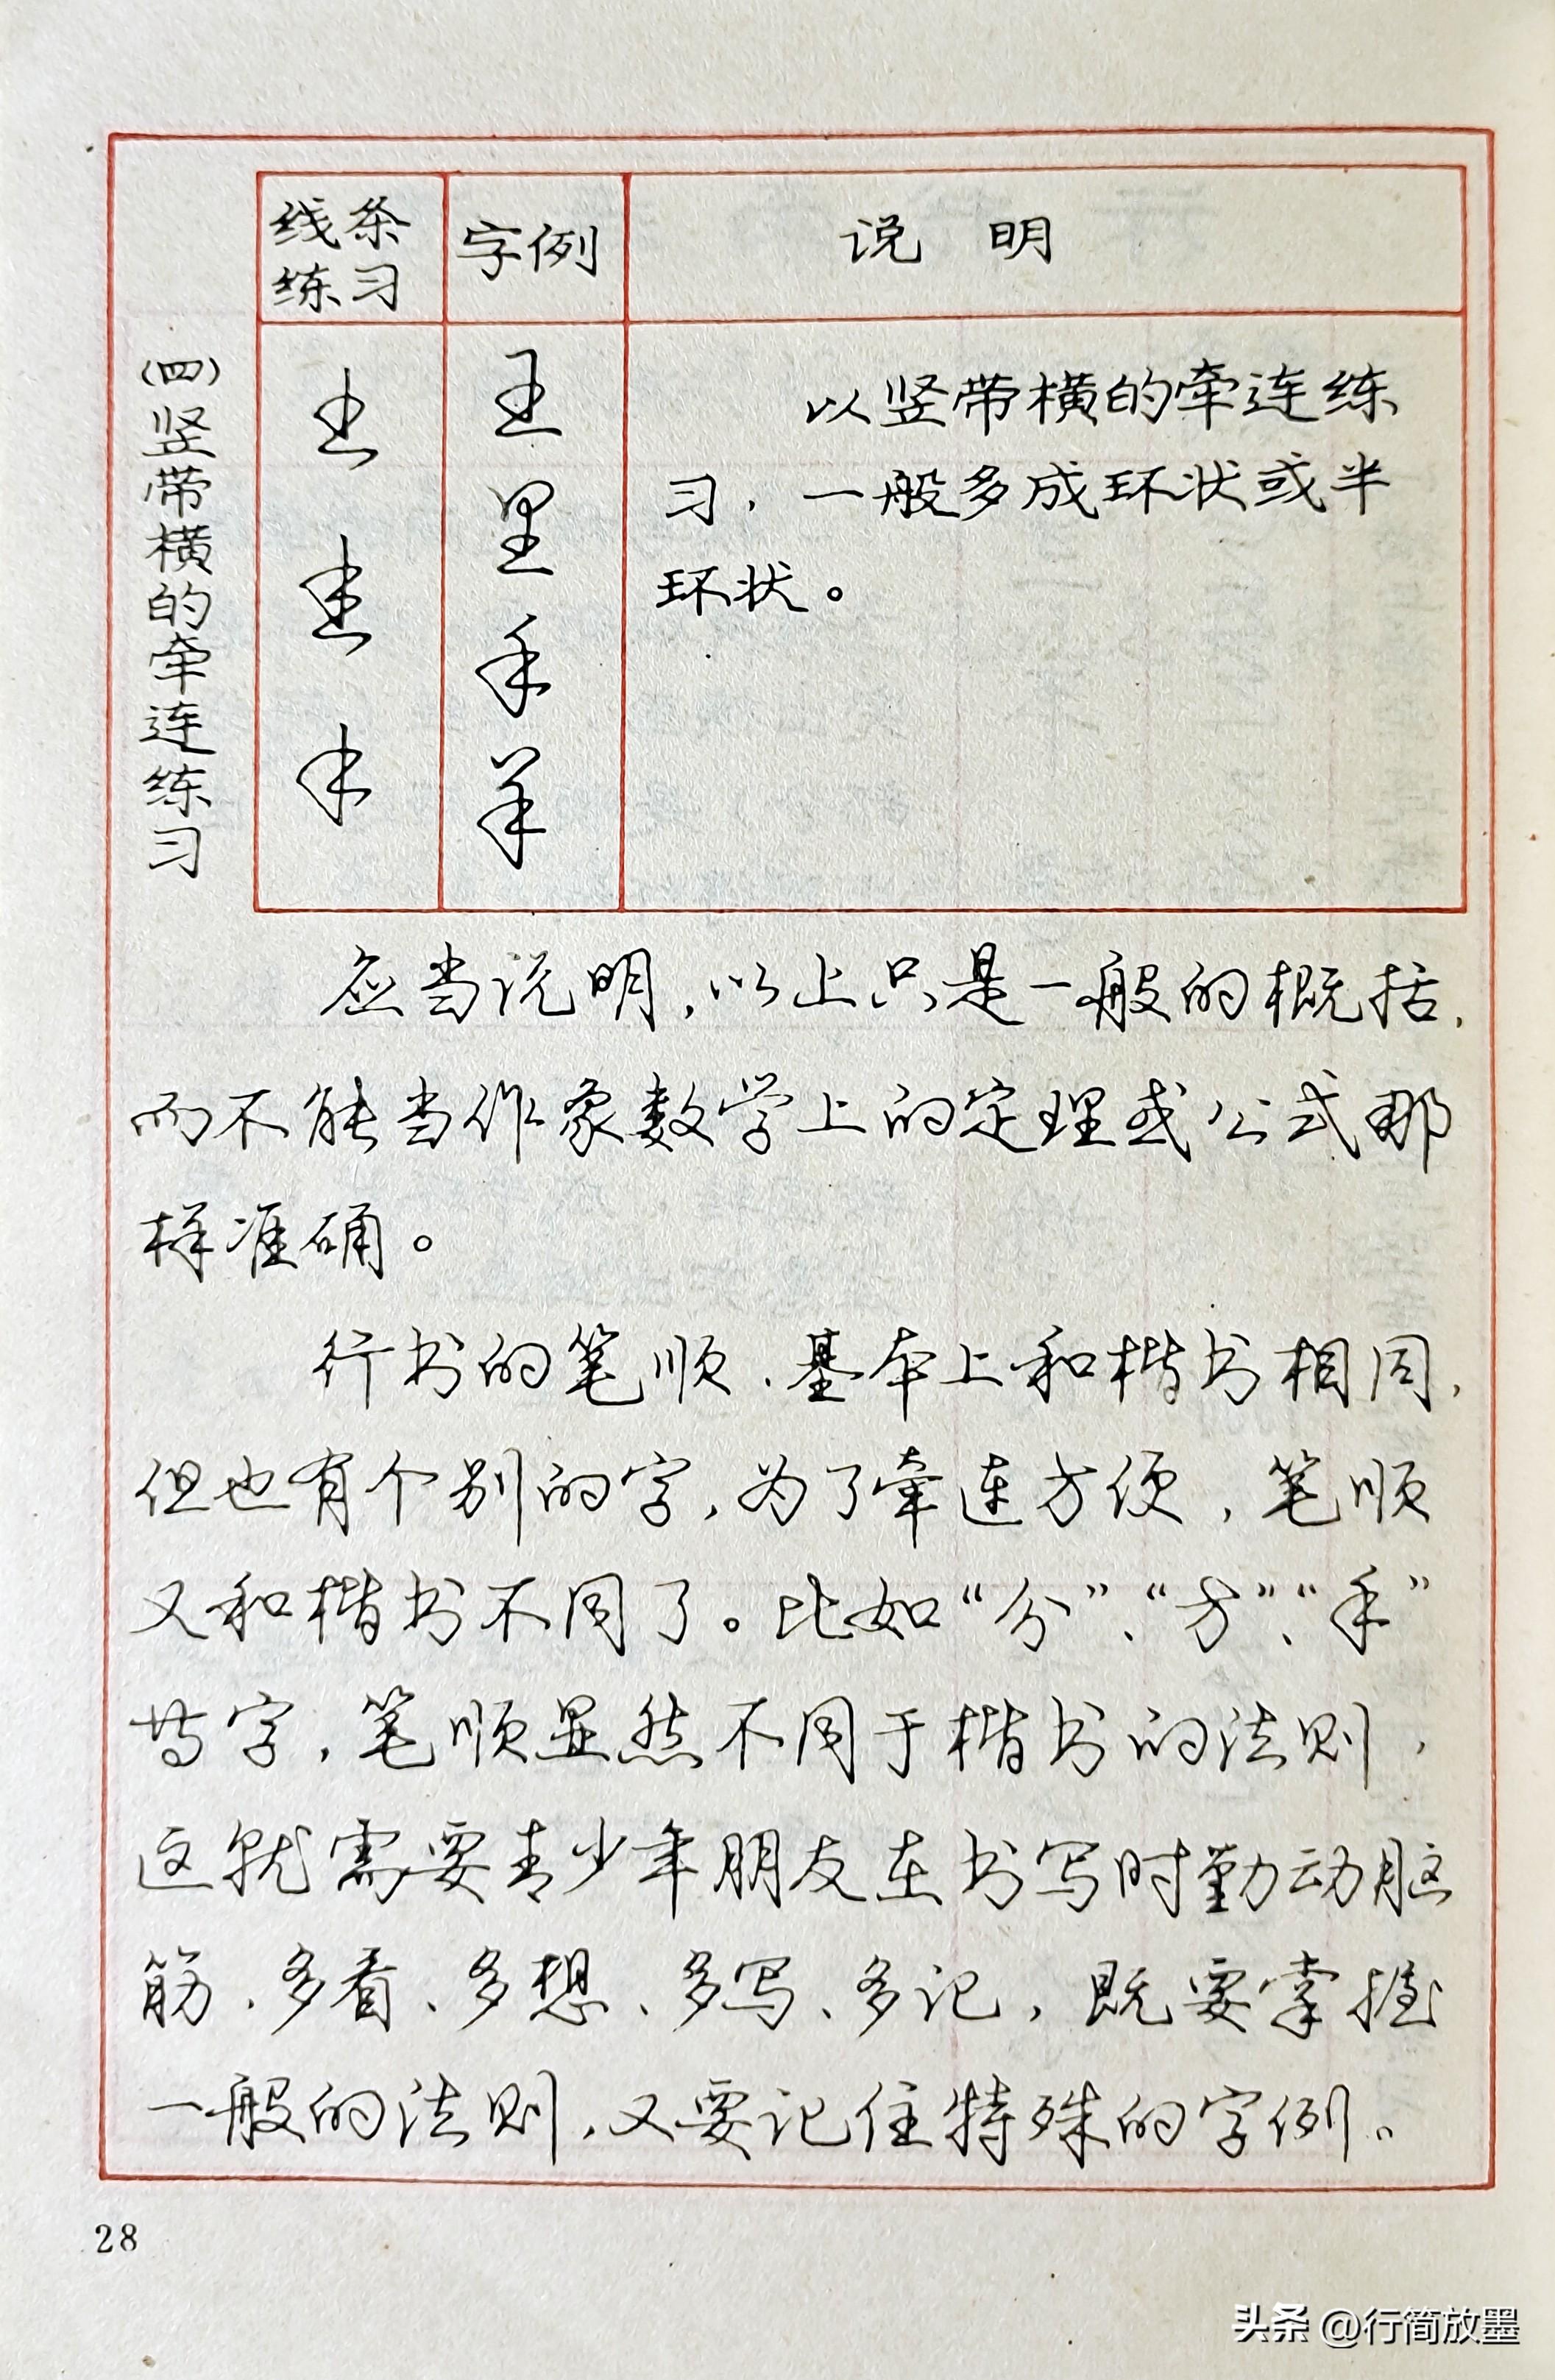 线条
练习
字例
说 明
(四)竖带横的牵连练习
王
里
手
羊
以竖带横的牵连练
习，一般多成环状或半
环状。
应当说明，以上只是一般的概括，
而不能当作象数学上的定理或公式那
样准确。
行书的笔顺，基本上和楷书相同，
但也有个别的字，为了牵连方便，笔顺
又和楷书不同了。比如“分”、“方”、“手”
等字，笔顺显然不同于楷书的法则，
这就需要青少年朋友在书写时勤动脑
筋、多看、多想、多写、多记，既要掌握
一般的法则，又要记住特殊的字例。
28
头条 @行简放墨